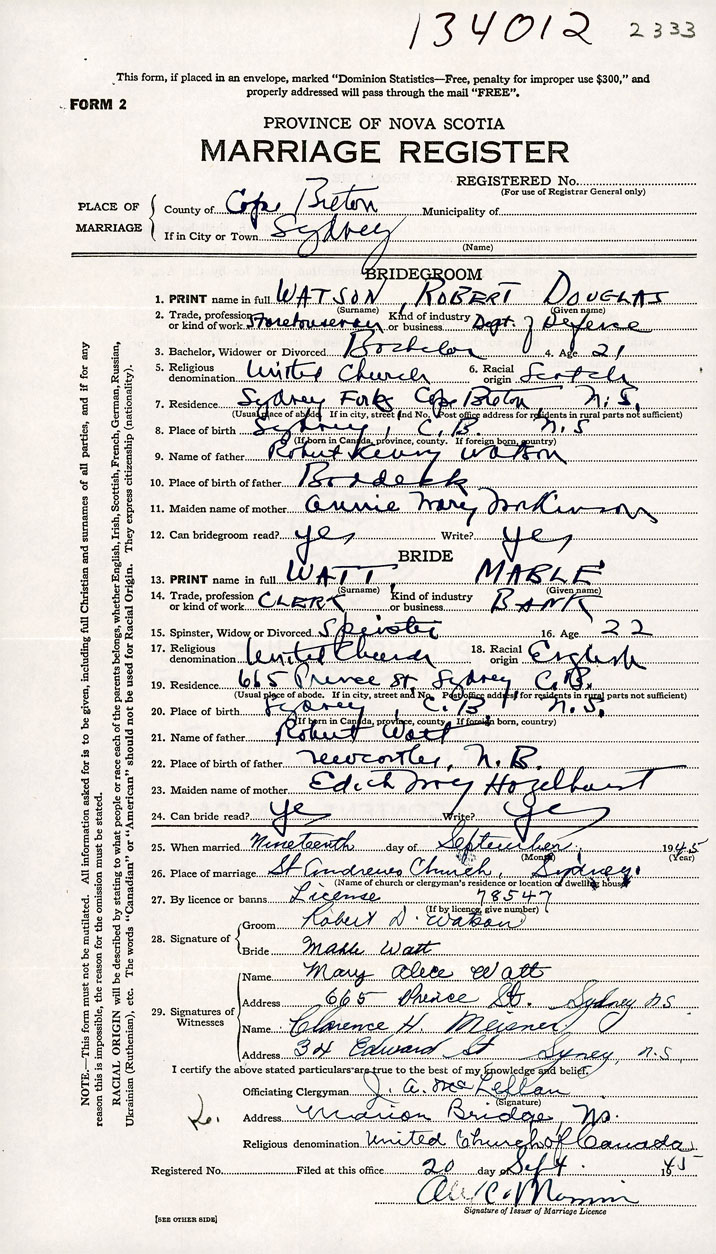 134012 2333
This form, if placed in an envelope, marked "Dominion Statistics—Free, penalty for improper use $300," and
properly addressed will pass through the mail "FREE".
FORM 2
PROVINCE OF NOVA SCOTIA
MARRIAGE REGISTER
REGISTERED No.
(For use of Registrar General only)
PLACE OF MARRIAGE
County of Cape Breton Municipality of
If in City or Town Sydney
(Name)
BRIDEGROOM
1. PRINT name in full WATSON, ROBERT DOUGLAS
(Surname) (Given name)
2. Trade, profession or kind of work Storehouseman Kind of industry or business Dept. of Defence
3. Bachelor, Widower or Divorced Bachelor 4. Age 21
5. Religious denomination United Church 6. Racial origin Scotch
7. Residence Sydney Forks Cape Breton N.S.
(Usual place of abode. If in city, street and No. Post office address for residents in rural parts not sufficient)
8. Place of birth Sydney, C.B. N.S
(If born in Canada, province, county. If foreign born, country)
9. Name of father Robert Henry Watson
10. Place of birth of father Baddeck
11. Maiden name of mother Annie Mary McKinnon
12. Can bridegroom read? yes Write? yes
BRIDE
13. PRINT name in full WATT, MABLE
(Surname) (Given name)
14. Trade, profession or kind of work CLERK Kind of industry or business BANK
15. Spinster, Widow or Divorced Spinster 16. Age 22
17. Religious denomination United Church 18. Racial origin English
19. Residence 665 Prince St, Sydney C.B.
(Usual place of abode. If in city, street and No. Post office address for residents in rural parts not sufficient)
20. Place of birth Sydney, C.B. N.S.
(If born in Canada, province, county. If foreign born, country)
21. Name of father Robert Watt
22. Place of birth of father Newcastle, N.B.
23. Maiden name of mother Edith May Hazelhurst
24. Can bride read? yes Write? yes
25. When married Nineteenth day of September, 1945
(Month) (Year)
26. Place of marriage St Andrews Church, Sydney.
(Name of church or clergyman's residence or location of dwelling house)
27. By licence or banns License 78547
(If by licence, give number)
28. Signature of
Groom Robert D. Watson
Bride Mable Watt
29. Signatures of Witnesses
Name Mary Alice Watt
Address 665 Prince St. Sydney N.S.
Name Clarence H. Meisner
Address 34 Edward St Syney, N.S.
I certify the above stated particulars are true to the best of my knowledge and belief.
Officiating Clergyman J. A. McLellan
(Signature)
Address Marion Bridge NS.
Religious denomination United Church of Canada
Registered No. Filed at this office 20 day of Sept. 1945
Signature of Issuer of Marriage Licence
[SEE OTHER SIDE]
NOTE.—This form must not be mutilated. All information asked for is to be given, including full Christian and surnames of all parties, and if for any
reason this is impossible, the reason for the omission must be stated.
RACIAL ORIGIN will be described by stating to what people or race each of the parents belongs, whether English, Irish, Scottish, French, German, Russian,
Ukrainian (Ruthenian), etc. The words "Canadian" or "American" should not be used for Racial Origin. They express citizenship (nationality).